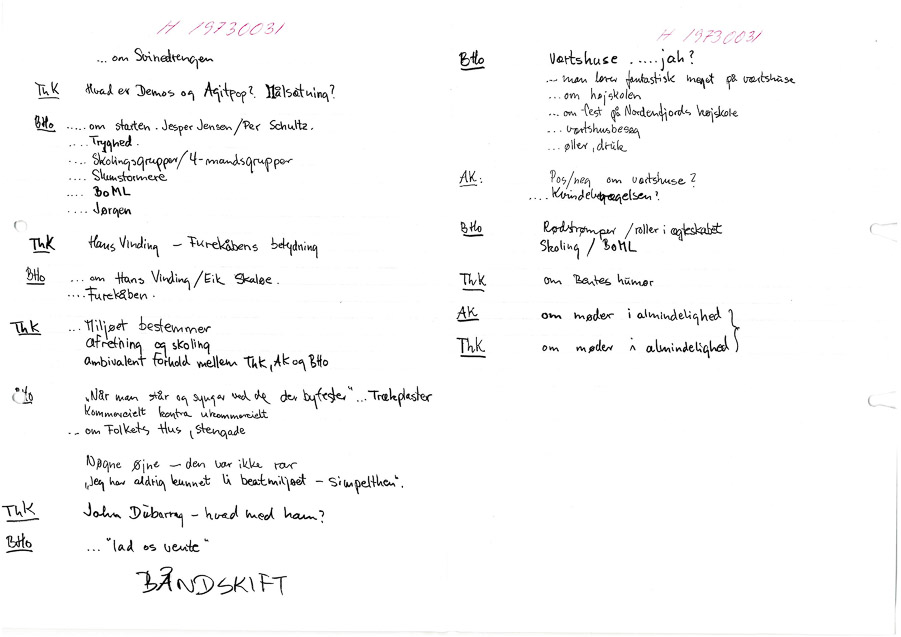 H 19730031
... om Svinedrengen
ThK Hvad er Demos og Agitpop? Målsætning?
BHo ..... om starten. Jesper Jensen/Per Schultz.
.... Tryghed.
.... Skolingsgrupper/4-mandsgrupper
.... Skumstormere
.... BoML
.... Jørgen
ThK Hans Vinding – Furekåbens betydning
BHo ... om Hans Vinding/Eik Skaløe.
.... Furekåben.
ThK ... Miljøet bestemmer
afretning og skoling
ambivalent forhold mellem ThK, AK og BHo
"Når man står og synger ved de der byfester" ... Trækplaster
Kommercielt kontra ukommercielt
... om Folkets Hus, Stengade
Nøgne Øjne – den var ikke rar
"Jeg har aldrig kunnet li beatmiljøet – simpelthen".
ThK John Dübarry – hvad med ham?
BHo ... "lad os vente"
BÅNDSKIFT
H 19730031
BHo Værtshuse ..... jah?
... man lærer fantastisk meget på værtshuse
... om højskolen
... om fest på Nordenfjords højskole
... værtshusbesøg
... øller, druk
AK: Pos/neg om værtshuse?
.... Kvindebevægelsen?
BHo Rødstrømper / roller i ægteskabet
Skoling / BoML
ThK om Bentes humør
AK om møder i almindelighed
ThK om møder i almindelighed